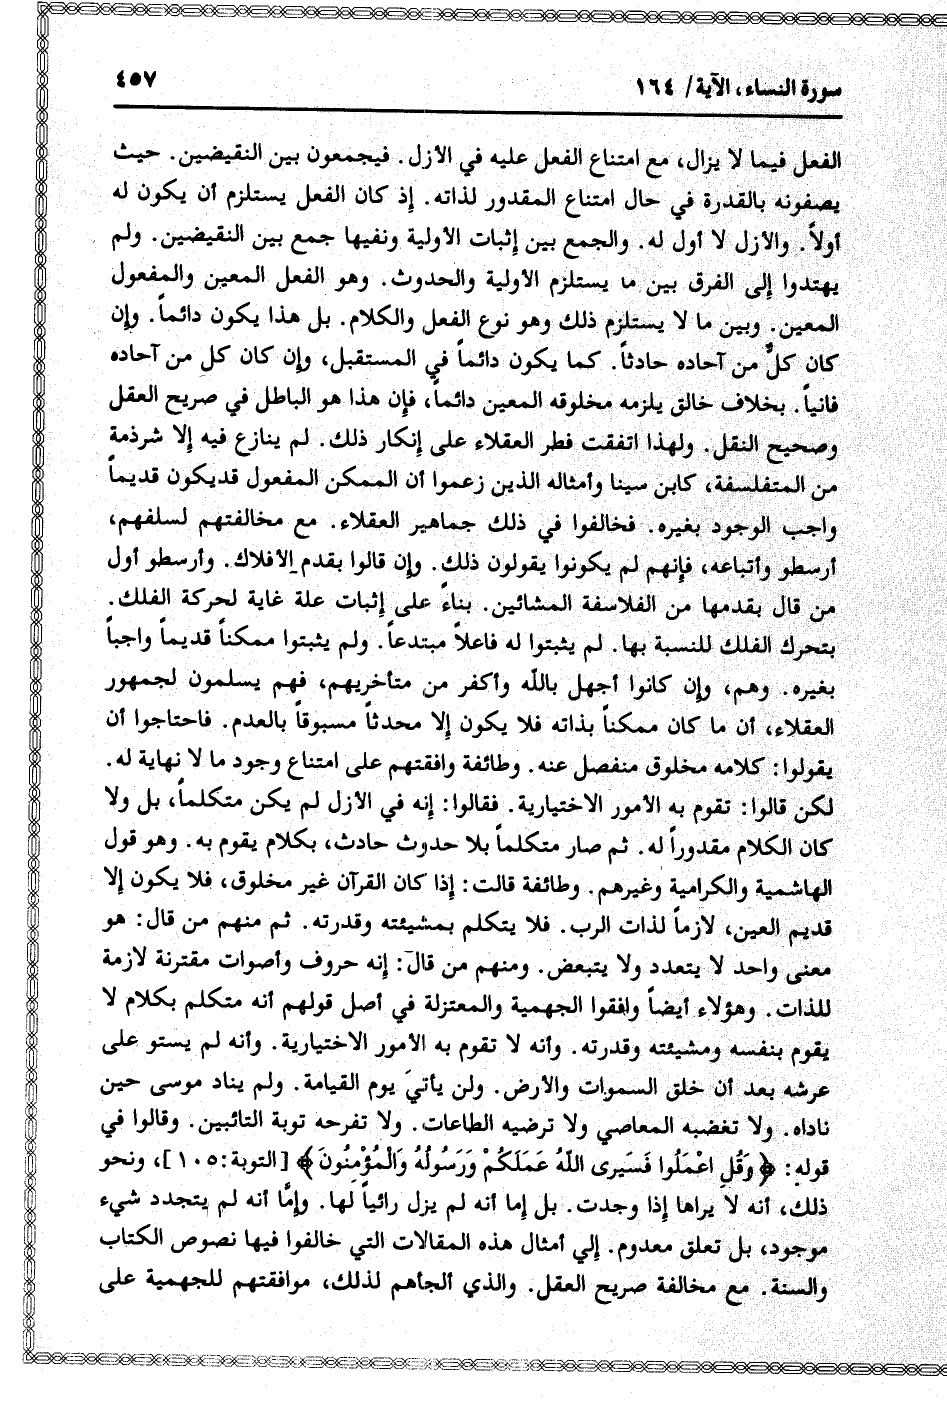 سورة النساء، الآية/ ١٦٤
٤٥٧
الفعل فيما لا يزال، مع امتناع الفعل عليه في الأزل. فيجمعون بين النقيضين. حيث
يصفونه بالقدرة في حال امتناع المقدور لذاته. إذ كان الفعل يستلزم أن يكون له
أولاً. والأزل لا أول له. والجمع بين إثبات الأولية ونفيها جمع بين النقيضين. ولم
يهتدوا إلى الفرق بين ما يستلزم الأولية والحدوث. وهو الفعل المعين والمفعول
المعين. وبين ما لا يستلزم ذلك وهو نوع الفعل والكلام. بل هذا يكون دائماً. وإن
كان كلٌّ من آحاده حادثاً. كما يكون دائماً في المستقبل، وإن كان كل من آحاده
فانياً. بخلاف خالق يلزمه مخلوقه المعين دائماً، فإن هذا هو الباطل في صريح العقل
وصحيح النقل. ولهذا اتفقت فطر العقلاء على إنكار ذلك. لم ينازع فيه إلا شرذمة
من المتفلسفة، كابن سينا وأمثاله الذين زعموا أن الممكن المفعول قديكون قديماً
واجب الوجود بغيره. فخالفوا في ذلك جماهير العقلاء. مع مخالفتهم لسلفهم،
أرسطو وأتباعه، فإنهم لم يكونوا يقولون ذلك. وإن قالوا بقدم الأفلاك. وأرسطو أول
من قال بقدمها من الفلاسفة المشائين. بناءً على إثبات علة غاية لحركة الفلك.
بتحرك الفلك للنسبة بها. لم يثبتوا له فاعلاً مبتدعاً. ولم يثبتوا ممكناً قديماً واجباً
بغيره. وهم، وإن كانوا أجهل بالله وأكفر من متأخريهم، فهم يسلمون لجمهور
العقلاء، أن ما كان ممكناً بذاته فلا يكون إلا محدثاً مسبوقاً بالعدم. فاحتاجوا أن
يقولوا: كلامه مخلوق منفصل عنه. وطائفة وافقتهم على امتناع وجود ما لا نهاية له.
لكن قالوا: تقوم به الأمور الاختيارية. فقالوا: إنه في الأزل لم يكن متكلماً، بل ولا
كان الكلام مقدوراً له. ثم صار متكلماً بلا حدوث حادث، بكلام يقوم به. وهو قول
الهاشمية والكرامية وغيرهم. وطائفة قالت: إذا كان القرآن غير مخلوق، فلا يكون إلا
قديم العين، لازماً لذات الرب. فلا يتكلم بمشيئته وقدرته. ثم منهم من قال: هو
معنى واحد لا يتعدد ولا يتبعض. ومنهم من قال: إنه حروف وأصوات مقترنة لازمة
للذات. وهؤلاء أيضاً وافقوا الجهمية والمعتزلة في أصل قولهم أنه متكلم بكلام لا
يقوم بنفسه ومشيئته وقدرته. وأنه لا تقوم به الأمور الاختيارية. وأنه لم يستو على
عرشه بعد أن خلق السموات والأرض. ولن يأتي يوم القيامة. ولم يناد موسى حين
ناداه. ولا تغضبه المعاصي ولا ترضيه الطاعات. ولا تفرحه توبة التائبين. وقالوا في
قوله: ﴿وَقُلِ اعْمَلُوا فَسَيرى اللّهُ عَمَلَكُمْ وَرَسُولُهُ وَالْمُؤْمِنُونَ﴾ [التوبة:١٠٥]، ونحو
ذلك، أنه لا يراها إذا وجدت. بل إما أنه لم يزل رائياً لها. وإمَّا أنه لم يتجدد شيء
موجود، بل تعلق معدوم. إلي أمثال هذه المقالات التي خالفوا فيها نصوص الكتاب
والسنة. مع مخالفة صريح العقل. والذي ألجأهم لذلك، موافقتهم للجهمية على